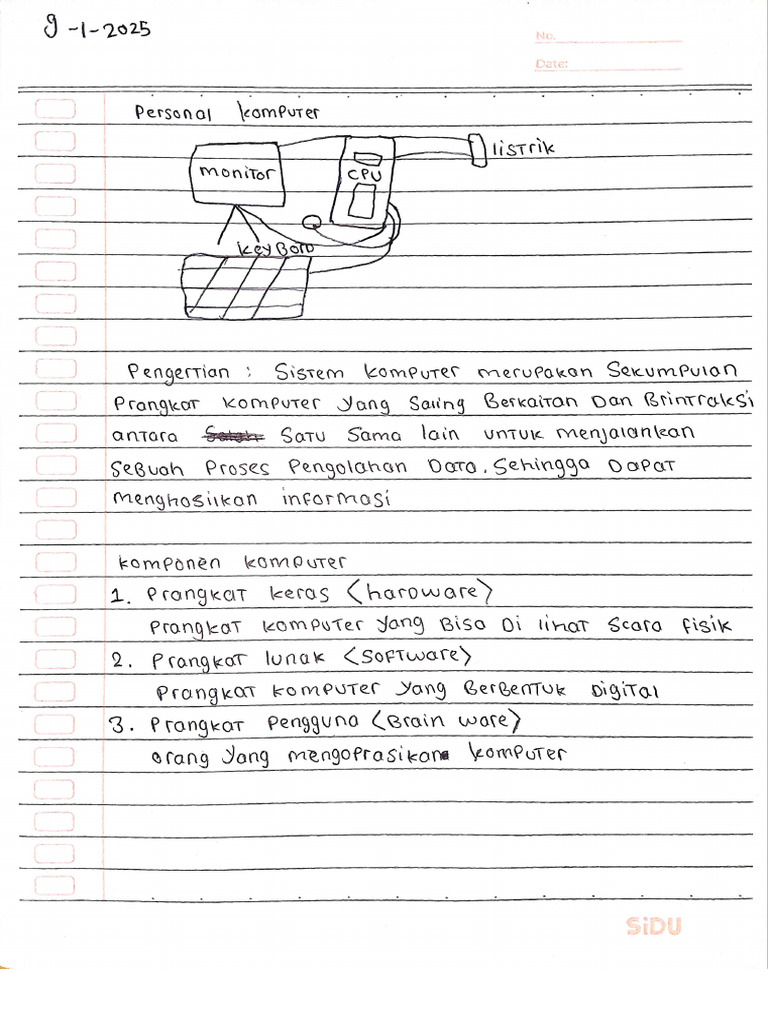 9-1-2025
No.
Date:
Personal komputer
monitor
CPU
listrik
keyBord
Pengertian : Sistem komputer merupakan Sekumpulan
Prangkat komputer yang Saling Berkaitan Dan Brintraksi
antara Satu Sama lain untuk menjalankan
Sebuah Proses Pengolahan Data. Sehingga Dapat
menghasilkan informasi
komponen komputer
1. Prangkat keras <hardware>
Prangkat komputer yang Bisa Di lihat Scara fisik
2. Prangkat lunak <software>
Prangkat komputer yang Berbentuk Digital
3. Prangkat Pengguna <Brain ware>
orang yang mengoprasikan komputer
SiDU